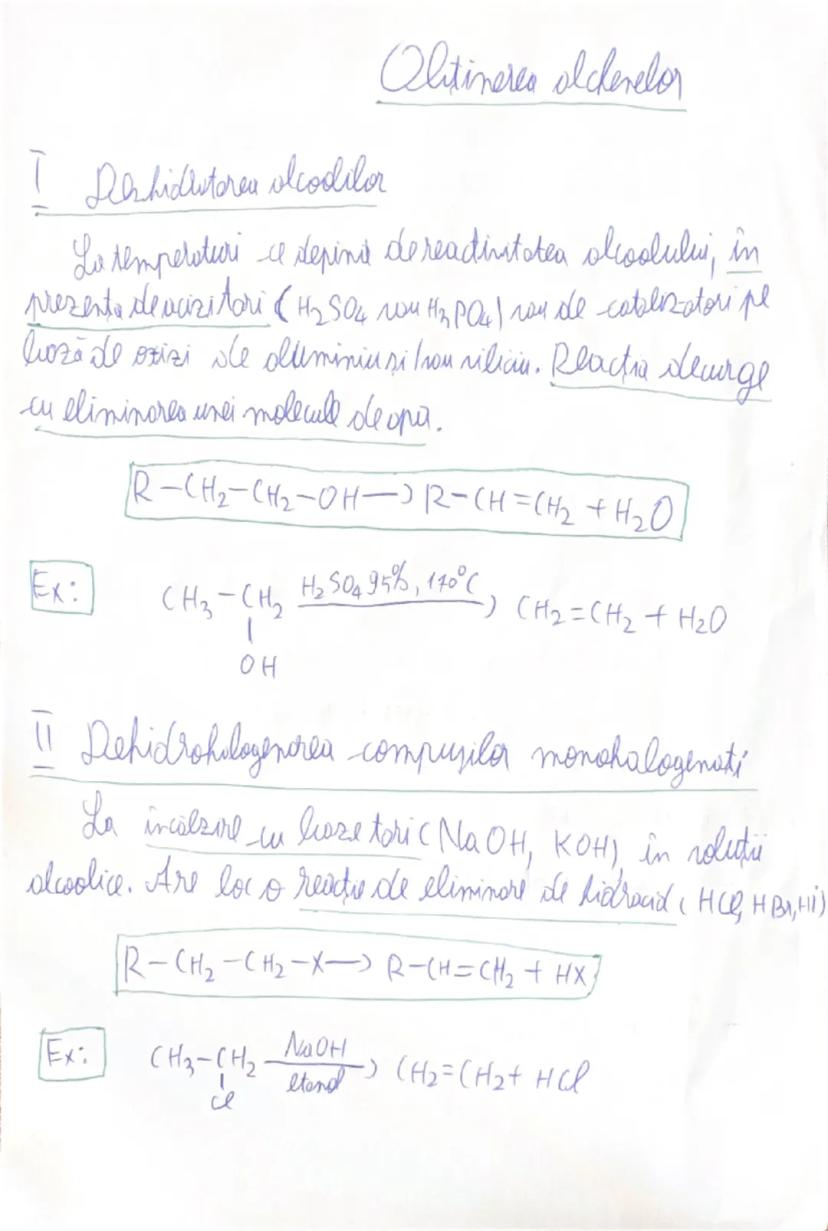 Obținerea alchenelor
I Deshidratarea alcoolilor
La temperaturi ce depind de reactivitatea alcoolului, în
prezența de acizi tari (H₂SO₄ sau H₃PO₄) sau de catalizatori pe
bază de oxizi de aluminiu și/sau siliciu. Reacția decurge
cu eliminarea unei molecule de apă.
R-CH₂-CH₂-OH → R-CH=CH₂ + H₂O
Ex: CH₃-CH₂ H₂SO₄ 95%, 170°C → CH₂=CH₂ + H₂O
OH
II Dehidrohalogenarea compușilor monohalogenați
La încălzire cu baze tari (NaOH, KOH) în soluții
alcoolice. Are loc o reacție de eliminare de hidracid (HCl, HBr, HI)
R-CH₂-CH₂-X → R-CH=CH₂ + HX
Ex: CH₃-CH₂ NaOH → CH₂=CH₂ + HCl
Cl etanol